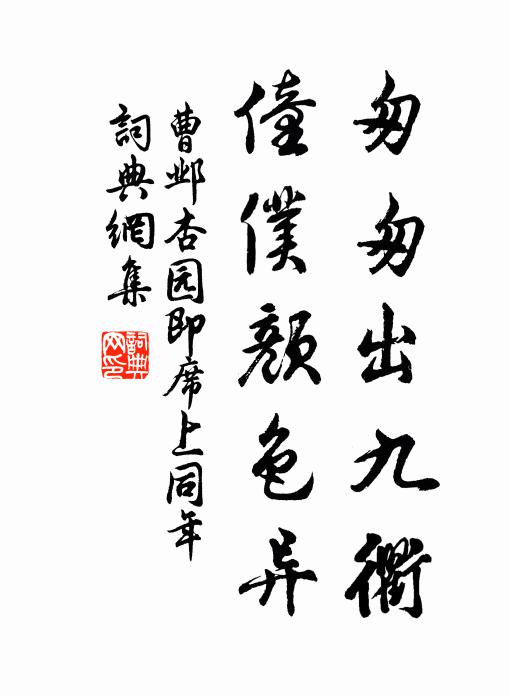 匆匆出九衢
僮僕顏色异
曹邺杏园即席上同年
詞典網集
詞典
网印